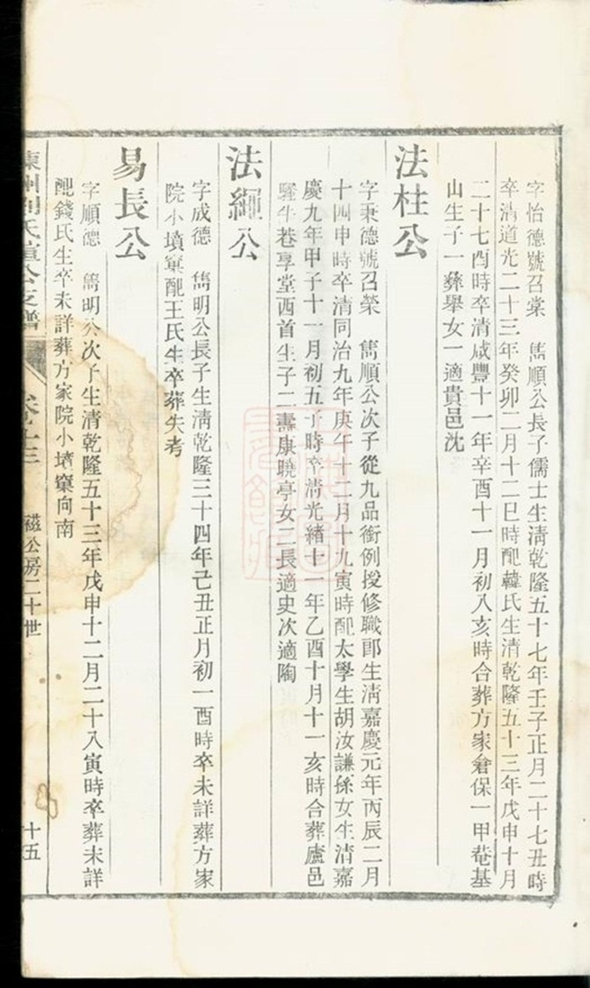 字怡德號召棠 儁順公長子儒士生清乾隆五十七年壬子正月二十七丑時
卒清道光二十三年癸卯二月十二巳時配韓氏生清乾隆五十三年戊申十月
二十七酉時卒清咸豐十一年辛酉十一月初八亥時合葬方家倉保一甲菴基
山生子一彝舉女一適貴邑沈
法柱公
字秉德號召榮 儁順公次子從九品銜例授修職郎生清嘉慶元年丙辰二月
十四申時卒清同治九年庚午十二月十九寅時配太學生胡汝謙孫女生清嘉
慶九年甲子十一月初五子時卒清光緒十一年乙酉十月十一亥時合葬廬邑
騹牛巷享堂西首生子二壽康曉亭女二長適史次適陶
法繩公
字成德 儁明公長子生清乾隆三十四年己丑正月初一酉時卒未詳葬方家
院小墳窠配王氏生卒葬失考
易長公
字順德 儁明公次子生清乾隆五十三年戊申十二月二十八寅時卒葬未詳
配錢氏生卒未詳葬方家院小墳窠向南
磁公房二十世
十五